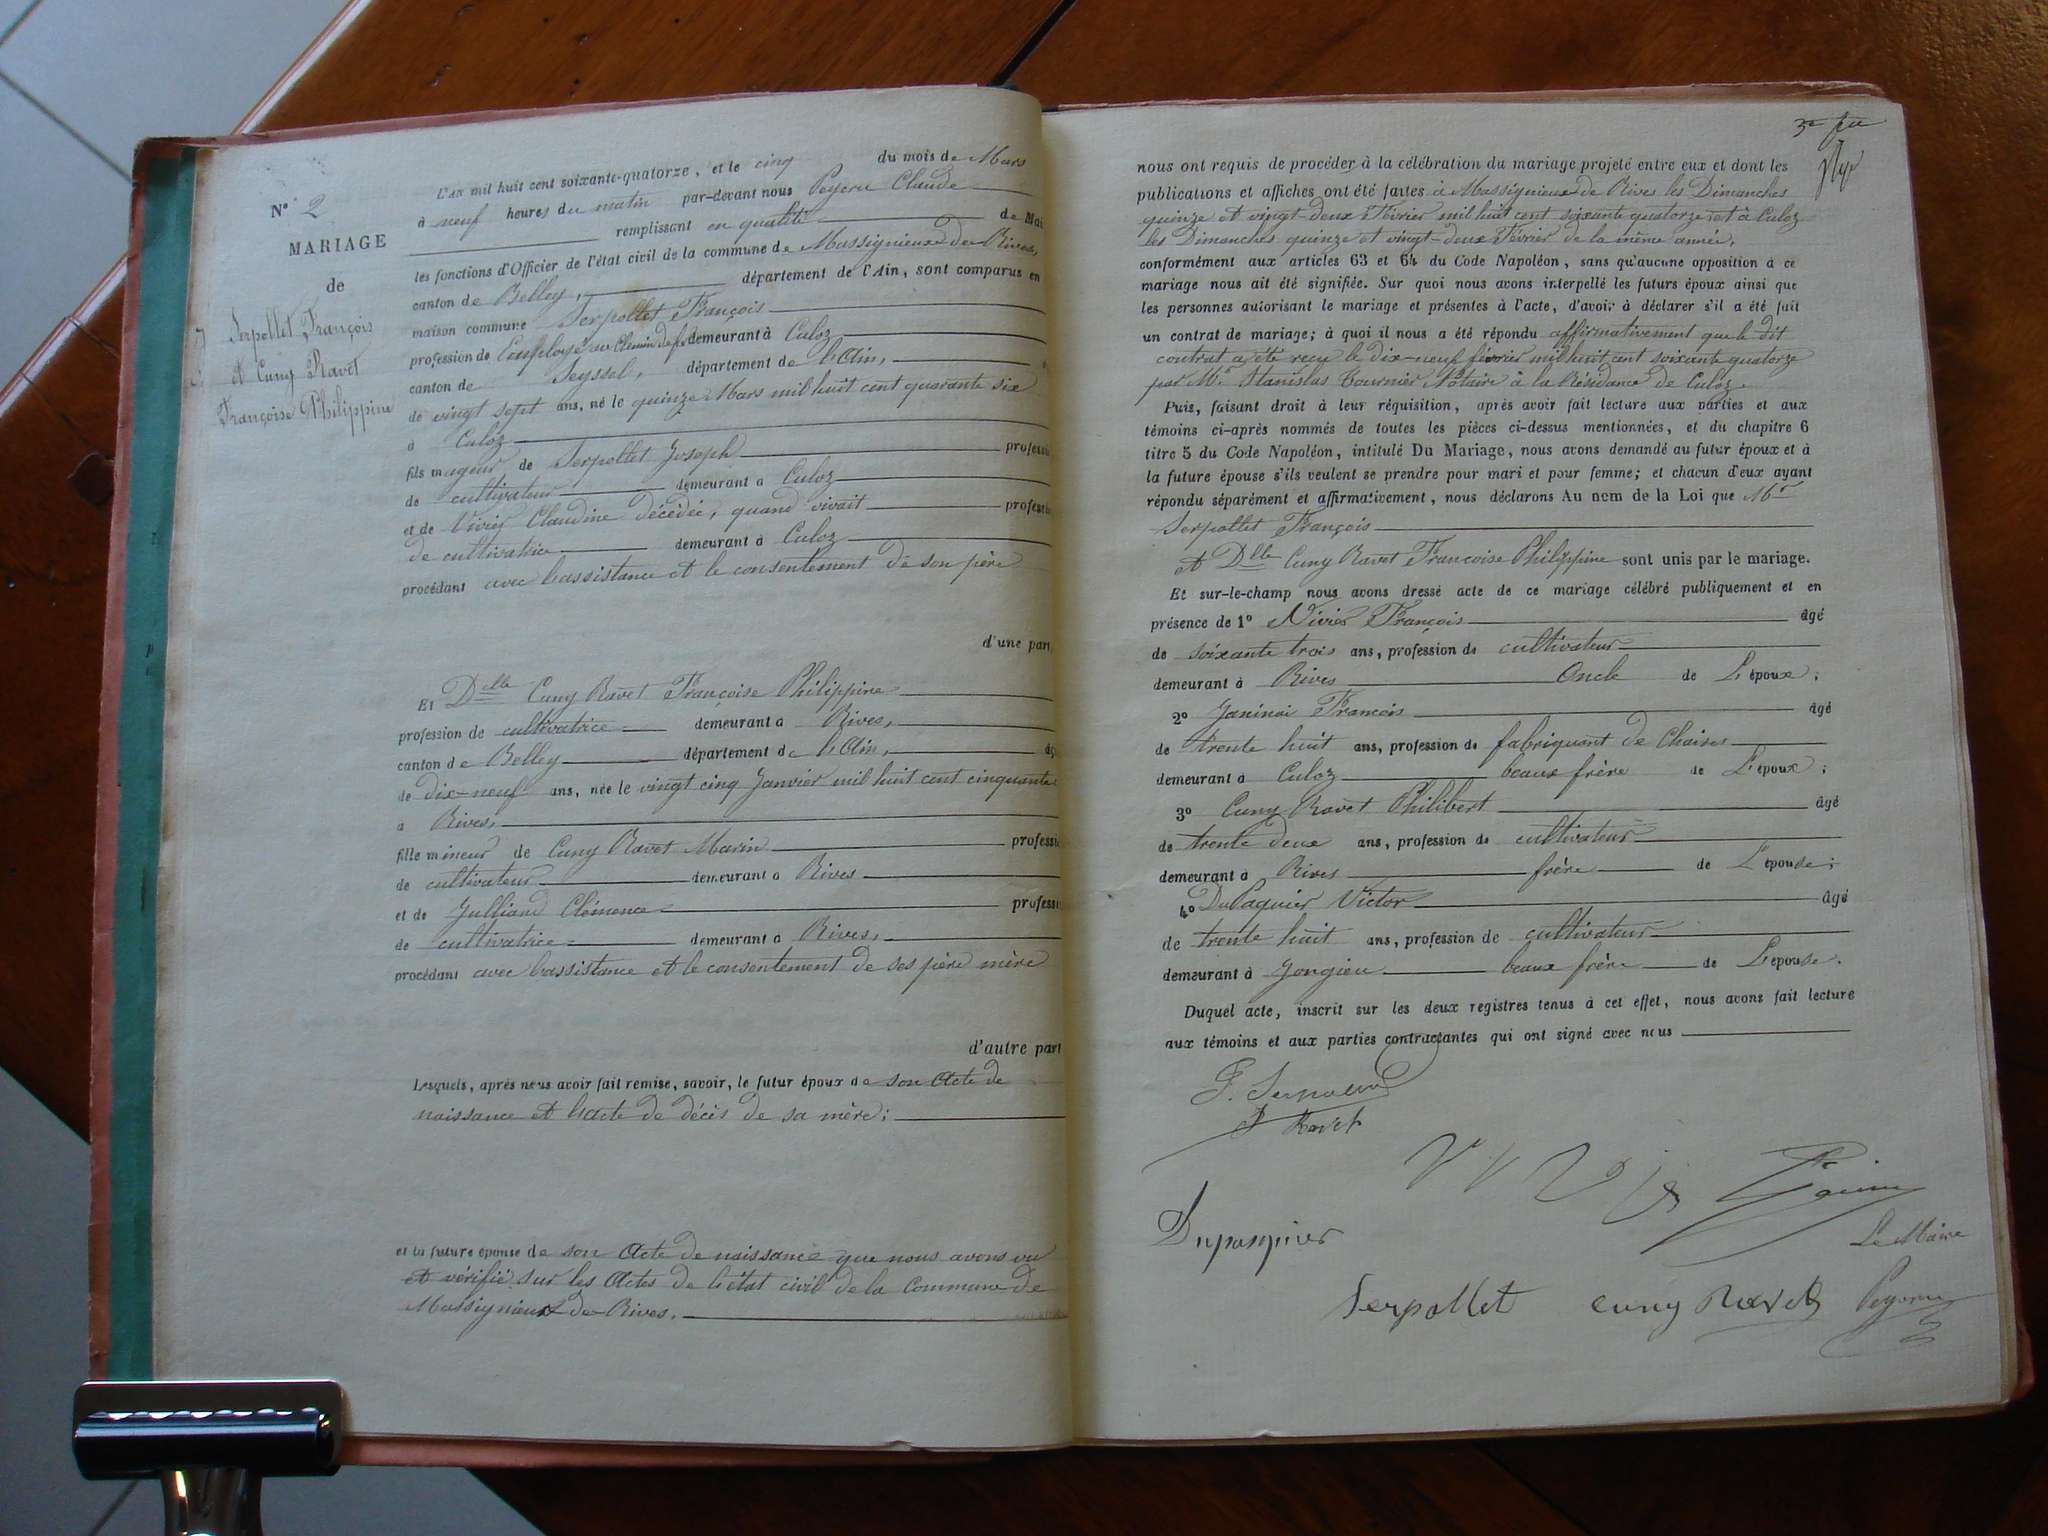 N° 2
MARIAGE
de
Serpollet François
et Cuny Ravet
Françoise Philippine
L'An mil huit cent soixante-quatorze, et le cinq du mois de Mars
à neuf heures du matin par-devant nous Peyern Claude
remplissant en qualité de Mai
les fonctions d'Officier de l'état civil de la commune de Massignieux de Rives,
canton de Belley, département de l'Ain, sont comparus en
maison commune Serpollet François
profession de Employé au Chemin de fer demeurant à Culoz
canton de Seyssel, département de l'Ain,
de vingt sept ans, né le quinze Mars mil huit cent quarante six
à Culoz
fils mageur de Serpollet Joseph professi
de cultivateur demeurant à Culoz
et de Vivier Claudine décédée, quand vivait professi
de cultivatrice demeurant à Culoz
procédant avec l'assistance et le consentement de son père
d'une part,
Et Delle Cuny Ravet Françoise Philippine
profession de cultivatrice demeurant à Rives,
canton de Belley département de l'Ain, âg
de dix-neuf ans, née le vingt cinq Janvier mil huit cent cinquante
à Rives,
fille mineur de Cuny Ravet Marin professi
de cultivateur demeurant à Rives
et de Julliand Clémence professi
de cultivatrice demeurant à Rives,
procédant avec l'assistance et le consentement de ses père mère
d'autre part
Lesquels, après nous avoir fait remise, savoir, le futur époux de son Acte de
naissance et l'acte de décès de sa mère;
et la future épouse de son Acte de naissance que nous avons vu
et vérifié sur les Actes de l'état civil de la Commune de
Massignieux de Rives.
nous ont requis de procéder à la célébration du mariage projeté entre eux et dont les
publications et affiches ont été faites à Massignieux de Rives les Dimanches
quinze et vingt-deux Février mil huit cent soixante quatorze et à Culoz
les Dimanches quinze et vingt-deux Février de la même année,
conformément aux articles 63 et 64 du Code Napoléon, sans qu'aucune opposition à ce
mariage nous ait été signifiée. Sur quoi nous avons interpellé les futurs époux ainsi que
les personnes autorisant le mariage et présentes à l'acte, d'avoir à déclarer s'il a été fait
un contrat de mariage; à quoi il nous a été répondu affirmativement que le dit
contrat a été reçu le dix-neuf février mil huit cent soixante quatorze
par Mr Stanislas Tournier Notaire à la Résidance de Culoz.
Puis, faisant droit à leur réquisition, après avoir fait lecture aux parties et aux
témoins ci-après nommés de toutes les pièces ci-dessus mentionnées, et du chapitre 6
titre 5 du Code Napoléon, intitulé Du Mariage, nous avons demandé au futur époux et à
la future épouse s'ils veulent se prendre pour mari et pour femme; et chacun d'eux ayant
répondu séparément et affirmativement, nous déclarons Au nom de la Loi que Mr
Serpollet François
et Dlle Cuny Ravet Francoise Philippine sont unis par le mariage.
Et sur-le-champ nous avons dressé acte de ce mariage célébré publiquement et en
présence de 1° Vivier François âgé
de soixante trois ans, profession de cultivateur
demeurant à Rives Oncle de L'époux;
2° Janinai François âgé
de trente huit ans, profession de fabriquant de Chaises
demeurant à Culoz beaux frère de L'époux;
3° Cuny Ravet Philibert âgé
de trente deux ans, profession de cultivateur
demeurant à Rives frère de L'épouse;
4° DuPaquier Victor âgé
de trente huit ans, profession de cultivateur
demeurant à Jongieu beaux frère de L'épouse.
Duquel acte, inscrit sur les deux registres tenus à cet effet, nous avons fait lecture
aux témoins et aux parties contractantes qui ont signé avec nous
F. Serpollet
P Ravet
Dupasquier
Le Maire
Serpollet cuny Ravet Peyern